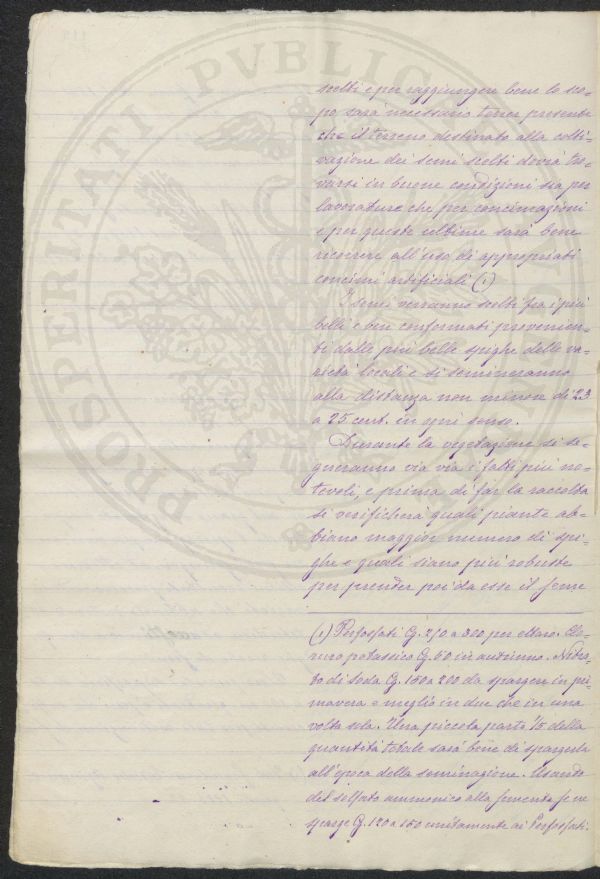 scelti e per raggiungere bene lo sco-
po sarà necessario tener presente
che il terreno destinato alla colti-
vazione dei semi scelti dovrà tro-
varsi in buone condizioni sia per
lavorature che per concimazioni
e per queste ultime sarà bene
ricorrere all'uso di appropriati
concimi artificiali (1)
I semi verranno scelti fra i più
belli e ben conformati provenien-
ti dalle più belle spighe delle va-
rietà locali e si semineranno
alla distanza non minore di 23
a 25 cent. in ogni senso.
Durante la vegetazione si se-
gneranno via via i fatti più no-
tevoli, e prima di far la raccolta
si verificherà quali piante ab-
biano maggior numero di spi-
ghe e quali siano più robuste
per prender poi da esse il seme
(1) Perfosfati Cg. 250 a 300 per ettaro. Clo-
ruro potassico Cg. 50 in autunno. Nitra-
to di soda Cg. 150 a 200 da spargere in pri-
mavera e meglio in due che in una
volta sola. Una piccola parte 1/5 della
quantità totale sarà bene di spargerla
all'epoca della seminagione. Usando
del solfato ammonico alla sementa se ne
sparge Cg. 120 a 150 unitamente ai Perfosfati.
PROSPERITATI PVBLICAE